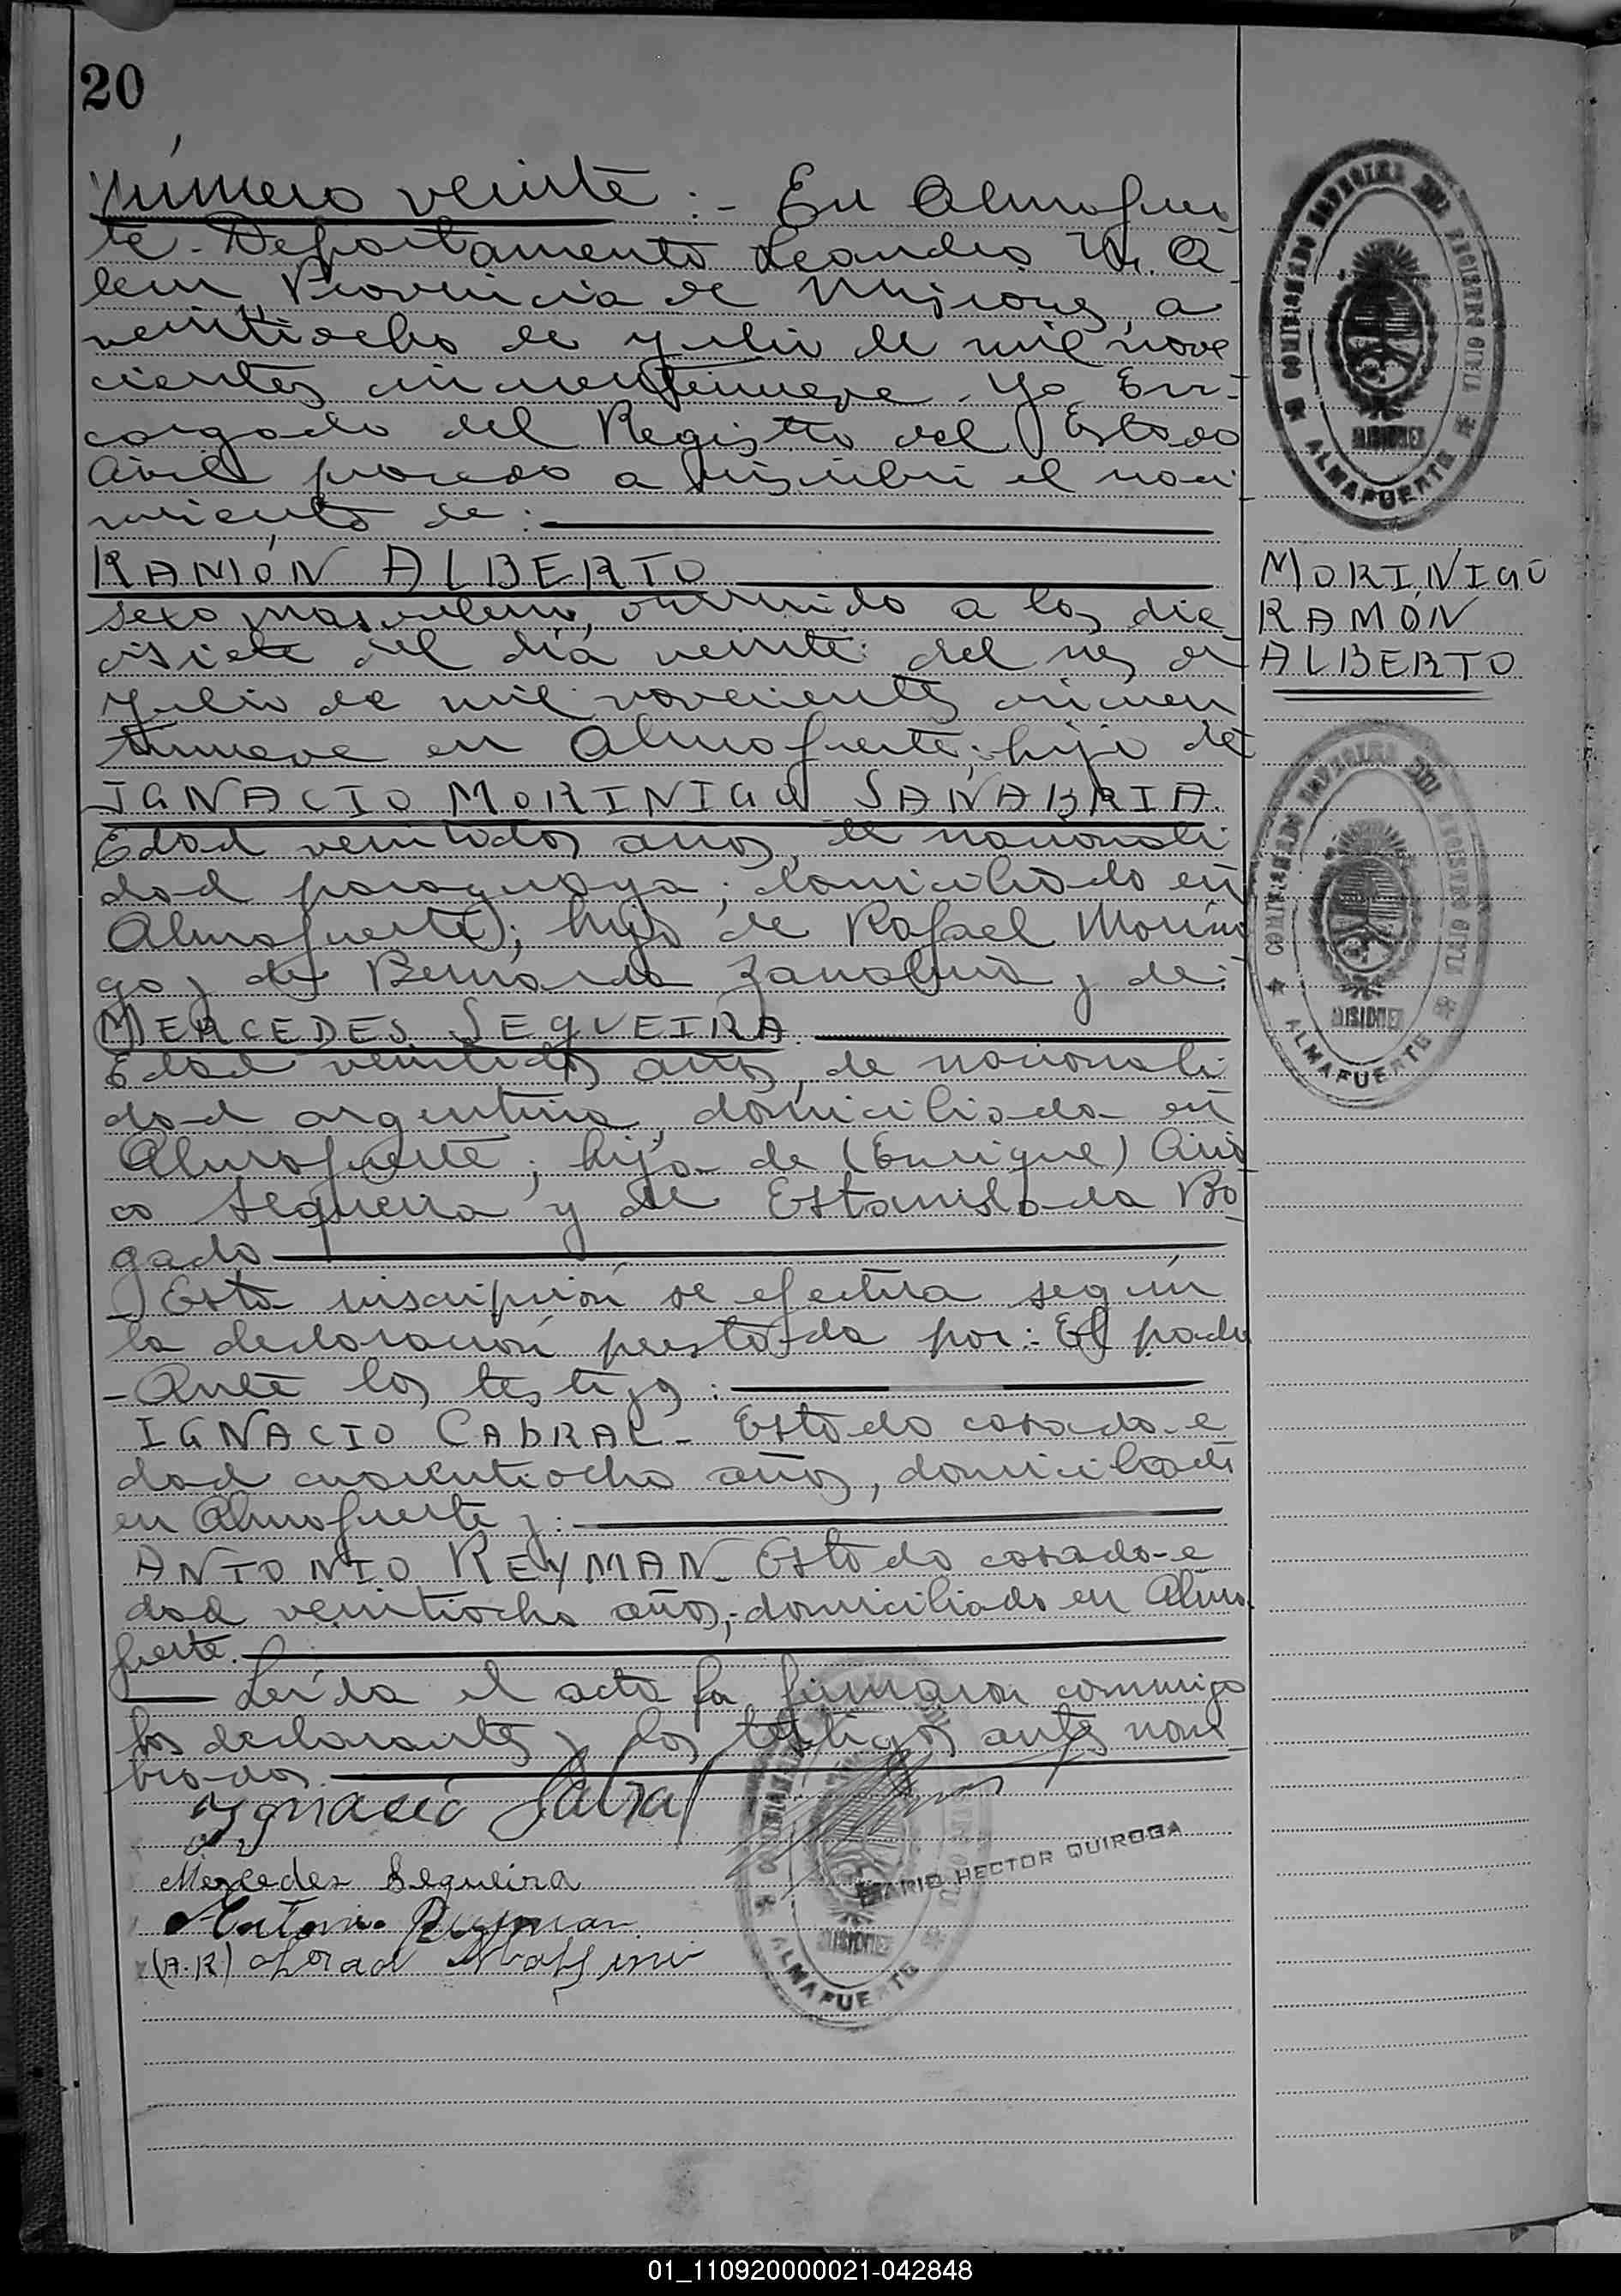 20
Número veinte :- En Almafuer
te - Departamento Leandro N. A
lem, Provincia de Misiones, a
veintiocho de julio de mil nove
cientos cincuentinueve. Yo En-
cargado del Registro del Estado
Civil procedo a inscribir el naci
miento de:
RAMÓN ALBERTO
sexo masculino, ocurrido a las die
cisiete del día veinte del mes de
julio de mil novecientos cincuen
tinueve en Almafuerte; hijo de
IGNACIO MORINIGO SANABRIA.
Edad veintidos años, de nacionali
dad paraguaya; domiciliado en
Almafuerte; hijo de Rafael Morini
go y de Bernarda Zanabria y de:
MERCEDES SEQUEIRA.
Edad veintidos años, de nacionali
dad argentina, domiciliada en
Almafuerte; hija de (Enrique)
co Sequeira y de Estanislada Bo
gado
Esta inscripción se efectúa según
la declaración prestada por: El padre
- Ante los testigos:
IGNACIO CABRAL - Estado casado - e
dad cuarentiocho años, domiciliado
en Almafuerte y:
ANTONIO REYMAN - Estado casado - e
dad veintiocho años, - domiciliado en Alma
fuerte.
Leída el acta la firmaron conmigo
los declarantes y los testigos antes nom
brados.
Ygnacio Cabral
MARIO HECTOR QUIROGA
Mercedes Sequeira
Antonio Reyman
(A.R)
MORINIGO
RAMÓN
ALBERTO
REGISTRO CIVIL
MISIONES
ALMAFUERTE
REGISTRO CIVIL
MISIONES
ALMAFUERTE
MISIONES
ALMAFUERTE
01_110920000021-042848